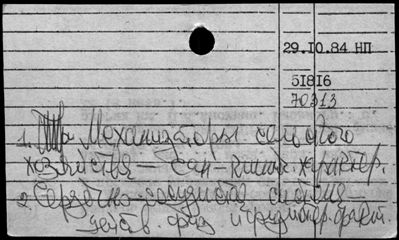 29.10.84 НП
51816
70313
1. Механизаторы сельского
хозяйства — сан-клин. характер.
2 Сердечно-сосудиста система —
действ. физ и